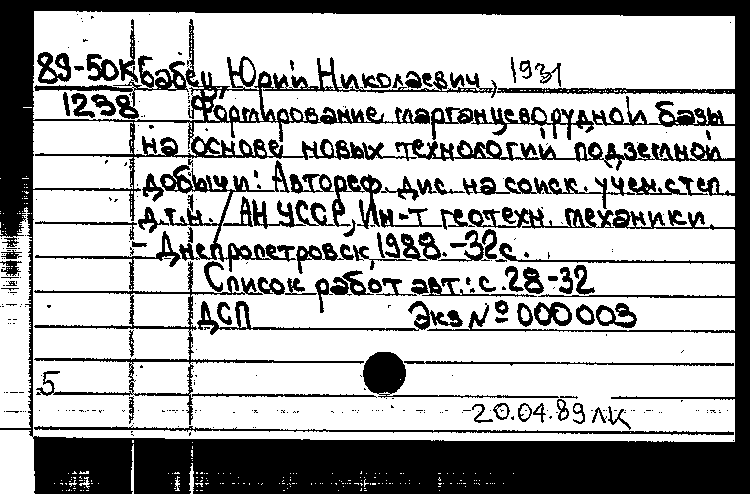 89-50К Бабец Юрий Николаевич, 1931
1238 Формирование марганцеворудной базы
на основе новых технологий подземной
добычи: Автореф. дис. на соиск. учен. степ.
д.т.н. / АН УССР, Ин-т геотехн. механики.
- Днепропетровск, 1988. -32с.
Список работ авт.: с. 28-32
ДСП Экз № 000003
5
20.04.89 ЛК